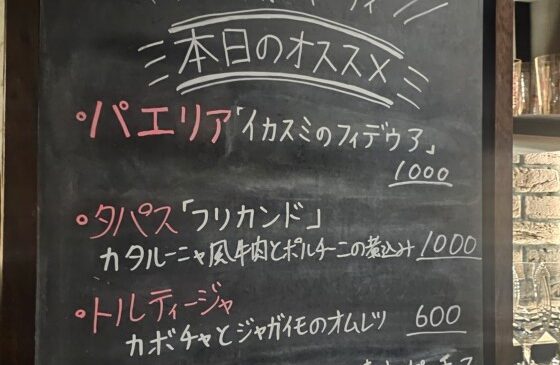 本日のオススメ
・パエリア「イカスミのフィデウア」
1000
・タパス「フリカンド」
カタルーニャ風牛肉とポルチーニの煮込み 1000
・トルティージャ
カボチャとジャガイモのオムレツ 600